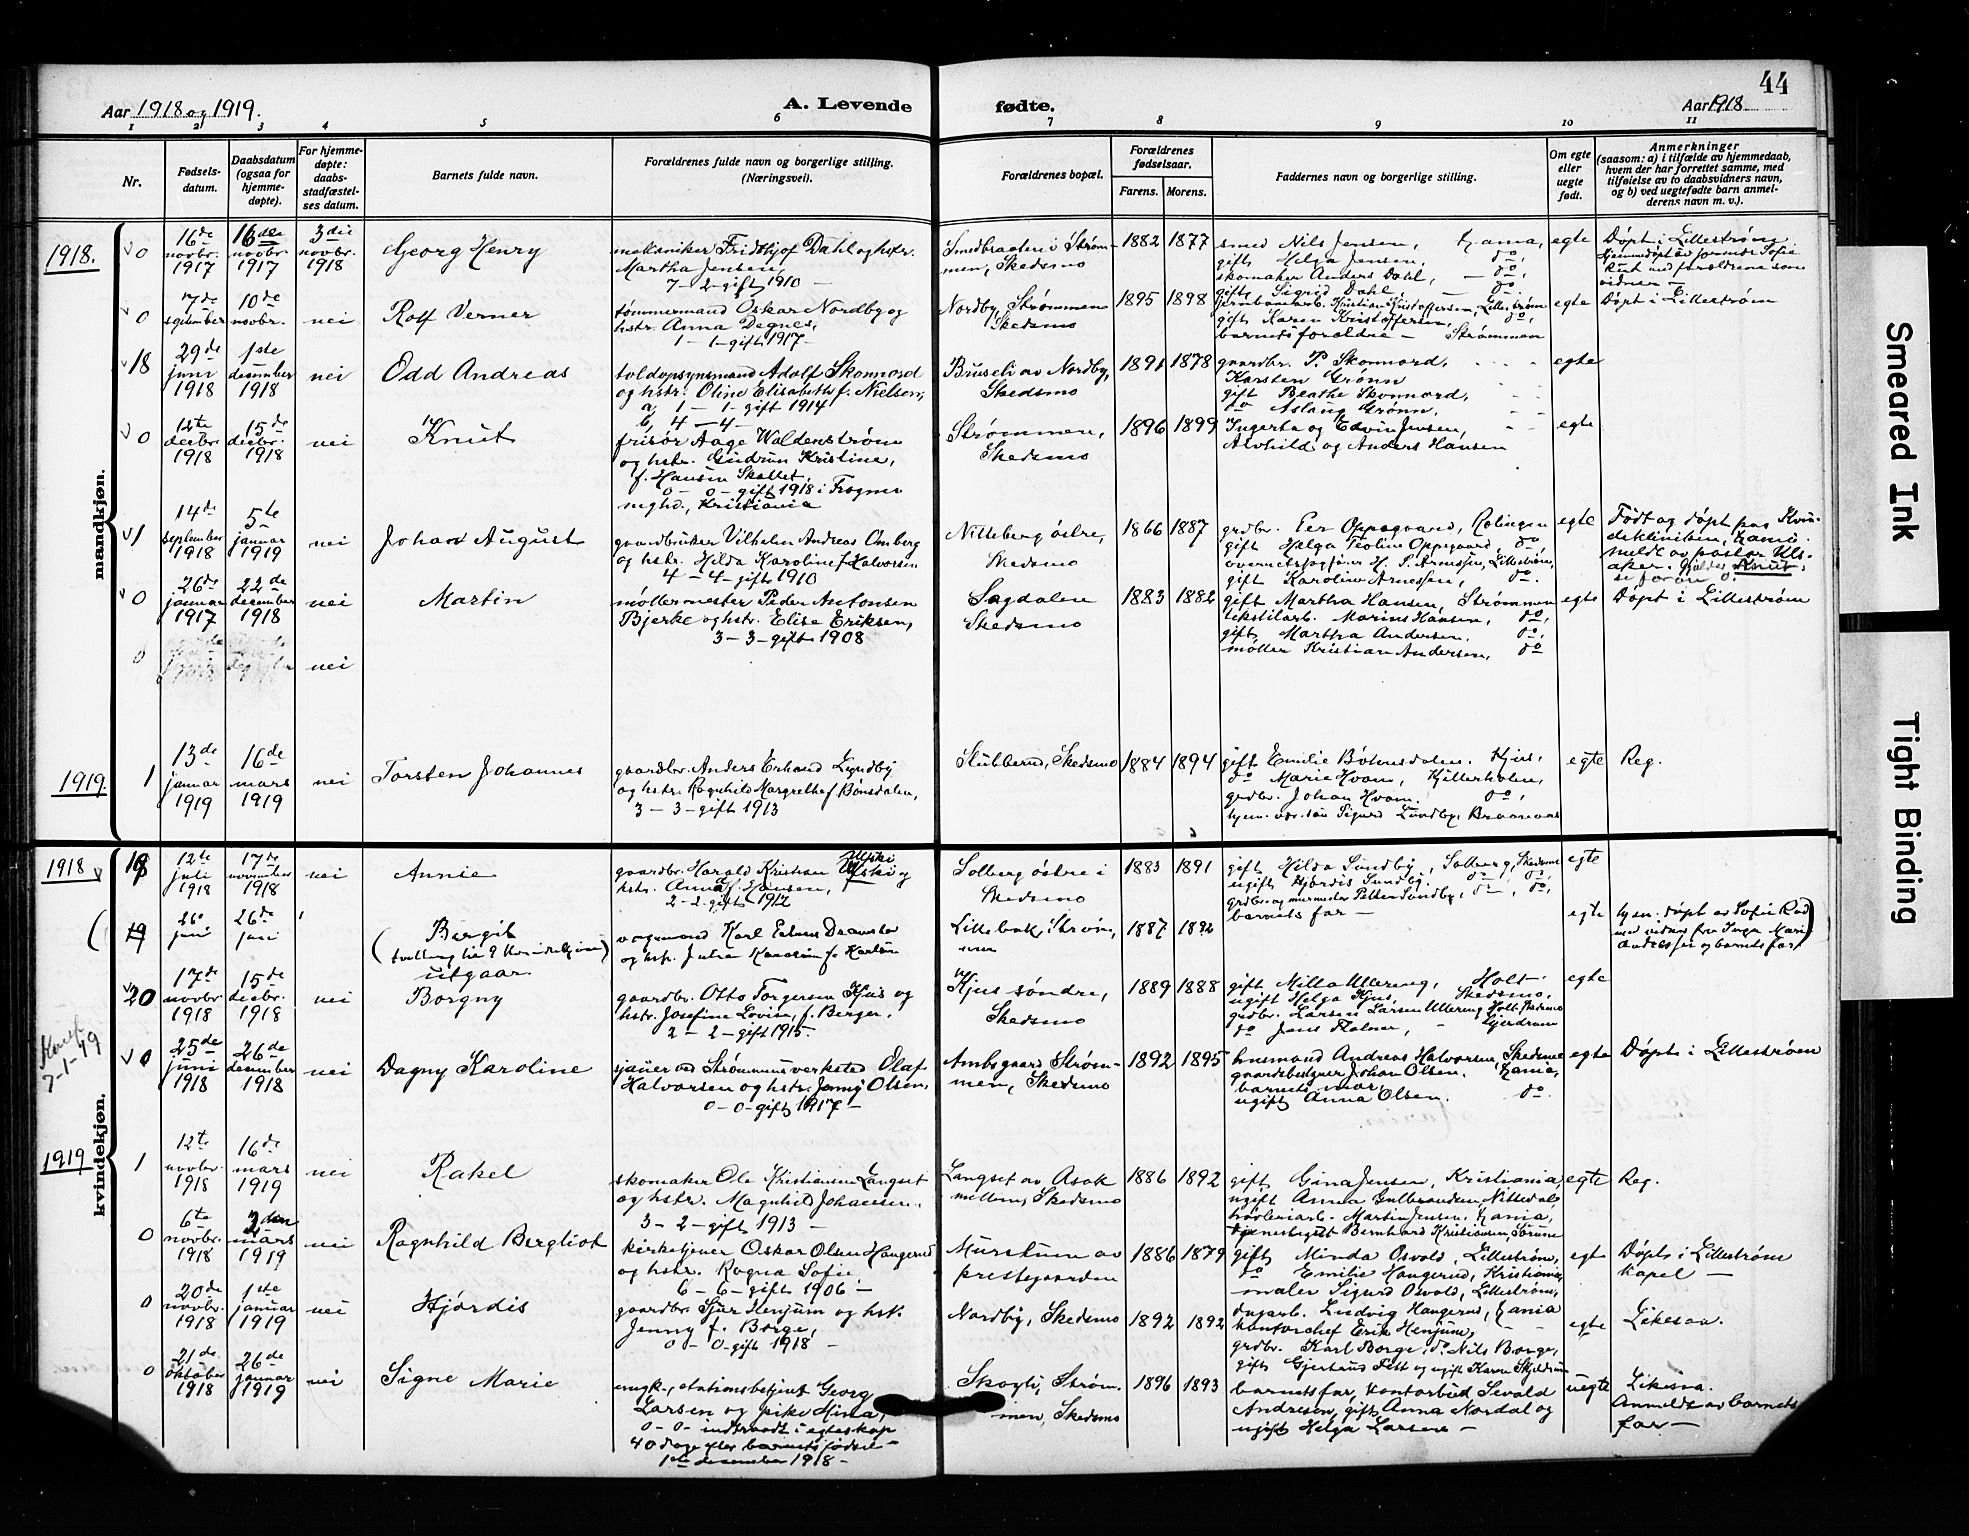 44
Aar 1918 og 1919.
A. Levende
fødte.
Aar 1918
1 2 3 4 5 6 7 8 9 10 11
Nr.
Fødsels-
datum.
Daabsdatum
(ogsaa for
hjemme-
døpte).
For hjemme-
døpte:
daabs-
stadfæstel-
ses datum.
Barnets fulde navn.
Forældrenes fulde navn og borgerlige stilling.
(Næringsvei).
Forældrenes bopæl.
Forældrenes
fødselsaar.
Farens. Morens.
Faddernes navn og borgerlige stilling.
Om egte
eller
uegte
født.
Anmerkninger
(saasom: a) i tilfælde av hjemmedaab,
hvem der har forrettet samme, med
tilføielse av to daabsvidners navn,
og b) ved uegtefødte barn anmel-
derens navn m. v.).
mandkjøn.
1918.
0
16de novbr. 1917
16de novbr. 1917
3die novbr. 1918
Georg Henry
mekaniker Fridthjof Dahl og hstr.
Martha Jensen,
7-2-gift 1910 -
Smedbraaten i Strøm-
men, Skedsmo
1882 1877
smed Nils Jensen, Kania,
gift Helga Jensen, do,
skomaker Anders Dahl, - do,
gift Sigrid Dahl, - do,
egte
Døpt i Lillestrøm
0
7de september
10de novbr.
nei
Rolf Verner
tømmermand Oskar Nordby og
hstr. Anna Degnes,
1-1-gift 1917-
Nordby, Strømmen
Skedsmo
1895 1898
jernbanearb. Kristian Kristoffersen, Lillestrøm
gift Karen Kristoffersen, do,
barnets forældre - Strømmen
egte
Døpt i Lillestrøm
18
29de juni 1918
1ste desember 1918
nei
Odd Andreas
toldopsynsmand Adolf Skonnord
og hstr. Oline Elisabeth f. Nielsen,
a, 1-1-gift 1914
b, 4-4-
Buseli av Nordby,
Skedsmo
1891 1878
gaardbr. P. Skonnord,
Karsten Grønn
gift Beathe Skonnord,
do Aslaug Grønn,
egte
0
desbr. 1918
15de desbr. 1918
nei
Knut
frisør Aage Waldenstrøm
og hstr. Gudrun Kristine,
f. Hansen
0-0-gift 1918 i Frogner
mghd., Kristiania
Strømmen,
Skedsmo
1896 1899
Ingerta og Edvin Jensen,
Alvhilde og Anders Hansen
egte
1
14de september 1918
5te januar 1919
nei
Johan August
gaardbruker Vilhelm Andreas Omberg
og hstr. Hilda Karoline f. Halvorsen
4-4-gift 1910
Nitteberg østre,
Skedsmo
1866 1887
grdbr. Per Oppegaard, Rælingen
gift Helga Teoline Oppegaard, do
H. P. Arnessen, Lillestrøm,
gift Karoline Arnessen, do.
egte
Født og døpt paa Kvin-
deklinikken, Kania.
0
26de januar 1917
22de desember 1918
nei
Martin
møllermester Peder Antonsen
Bjerke og hstr. Elise Eriksen,
3-3-gift 1908
Sagdalen
Skedsmo
1883 1882
gift Martha Hansen, Strømmen
tekstilarb. Marius Hansen, do,
gift Martha Andersen. do,
møller Kristian Andersen, do
egte
Døpt i Lillestrøm
0
nei
1919.
1
13de januar 1919
16de mars 1919
nei
Torsten Johannes
gaardbr. Anders Erhard Lundby
og hstr. Ragnhild Margrethe f. Bønsdalen,
3-3-gift 1913
Stubberud, Skedsmo
1884 1894
gift Emilie Bønsdalen. Kjus,
do Marie Hvam, Kjellerholen,
grdbr. Johan Hvam. do,
Sigurd Lundby, Braanaas
egte
Reg.
kvindekjøn.
1918
12te juli 1918
17de november 1918
nei
Annie
gaardbr. Harald Kristian Ulski og
hstr. Anna f. Hansen,
2-2-gift 1912
Solberg østre i
Skedsmo
1883 1891
gift Hilda Sundby, Solberg, Skedsmo
ugift Hjørdis Sundby do, do,
grdbr. og murmester Petter Sundby, do, do,
barnets far -
egte
19
26 juni
26de juni
Bergit
utgaar
vognmand Karl
og hstr. Julie
Lillebak, Strøm,
men
1887 1892
egte
hjem. døpt av Sofie
og barnets far
20
17de novbr. 1918
15de desbr. 1918
nei
Borgny
gaardbr. Otto Torgersen Kjus og
hstr. Josefine Lovise, f. Berger.
2-2-gift 1915.
Kjus søndre,
Skedsmo
1889 1888
gift Milla Ullereng, Holt
ugift Helga Kjus, Skedsmo,
grdbr. Larsen Ullereng Holt, Skedsmo
do Jens Gjerdrum
egte
7-1-49
0
25de juni 1918
26de desember 1918
nei
Dagny Karoline
sjauer ved Strømmens verksted Olaf
Halvorsen og hstr. Jenny Olsen,
0-0-gift 1917 -
Ambogaard, Strøm-
men, Skedsmo
1892 1895
husmand Andreas Halvorsen, Skedsmo
gaardsbestyrer Johan Olsen. Kania,
barnets mor,
ugift Anna Olsen. do.
egte
Døpt i Lillestrøm
1919
1
12te novbr. 1918
16de mars 1919
nei
Rakel
skomaker Ole Kristiansen Langset
og hstr. Magnhild Johansen.
3-2-gift 1913 -
Langset av Asak
mellem, Skedsmo
1886 1892
gift Gina Jensen, Kristiania,
ugift Anna Gulbrandsen, Nittedal,
Martin Jensen, Kania,
Bernhard Kristiansen, Sørum
egte
Reg.
0
6te novbr. 1918
2den mars 1919
nei
Ragnhild Bergliot
kirketjener Oskar Olsen Haugerud
og hstr. Ragna Sofie,
6-6-gift 1906 -
Murstuen av
prestegaarden
1886 1879
gift Minda Osvold, Lillestrøm,
do Emilie Haugerud, Kristiania,
maler Sigurd Osvold, Lillestrøm,
dagarb. Ludvig Haugerud, Kania
egt
Døpt i Lillestrøm
kapel -
0
20de novbr. 1918
1ste januar 1919
nei
Hjørdis
gaardbr. Sjur Henjum og hst.
Jenny f. Borge,
0-0-gift 1918 -
Nordby, Skedsmo
1892 1892
kontorchef Erik Henjum,
grdbr. Karl Borge, do Nils Borge,
egte
Likesaa.
0
21de oktober 1918
26de januar 1919
nei
Signe Marie
stationsbetjent Georg
Larsen og pike Hina,
0-0- indtraadt i egteskap
40 dage efter barnets fødsel -
1ste desember 1918 -
Skogli, Strøm.
men, Skedsmo
1896 1893
barnets far, kontorbud Sevald
Andresen, gift Anna Nordal og
ugift Helga Larsen -
uegte
Likesaa.
Anmeldt av barnets
far -
Smeared Ink
Tight Binding